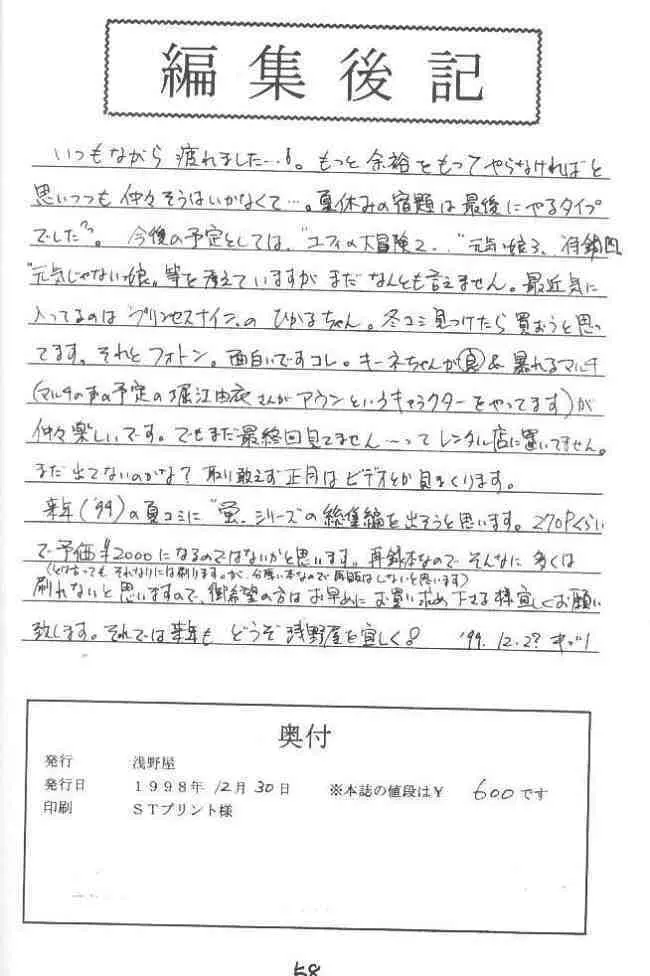 編集後記
いつもながら 疲れました…。もっと 余裕をもって やらなければと
思いつつも 仲々そうはいかなくて…。夏休みの宿題は最後にやるタイプ
でした。 今後の予定としては、"ユフィの大冒険2"、"元気な娘3、
"元気じゃない娘" 等を考えていますが まだ なんとも言えません。最近気に
入ってるのは プリンセスナイン の ひかるちゃん。冬コミ見つけたら買おうと思っ
てます。それと フォトン。面白いですコレ。キーネちゃんが(良)& 暴れるマルチ
(マルチの声の予定の堀江由衣さんが アウンというキャラクターをやってます)が
仲々楽しいです。でもまだ最終回見てません…って レンタル店に置いてません。
まだ出てないのかな? 取り敢えず正月は ビデオとか見まくります。
来年('99)の夏コミに "蛍"シリーズの総集編を出そうと思います。270Pくらい
で予価¥2000になるのではないかと思います。再録本なので そんなに 多くは
(とは言っても それなりには刷りますが、分厚い本なので再販はしないと思います)
刷れないと思いますので、御希望の方は お早めに お買い求め下さる様宜しくお願い
致します。それでは来年も どうぞ 浅野屋を宜しく。 '99.12.27
奥付
発行 浅野屋
発行日 1998年 12月 30日 ※本誌の値段は¥ 600です
印刷 STプリント様
58